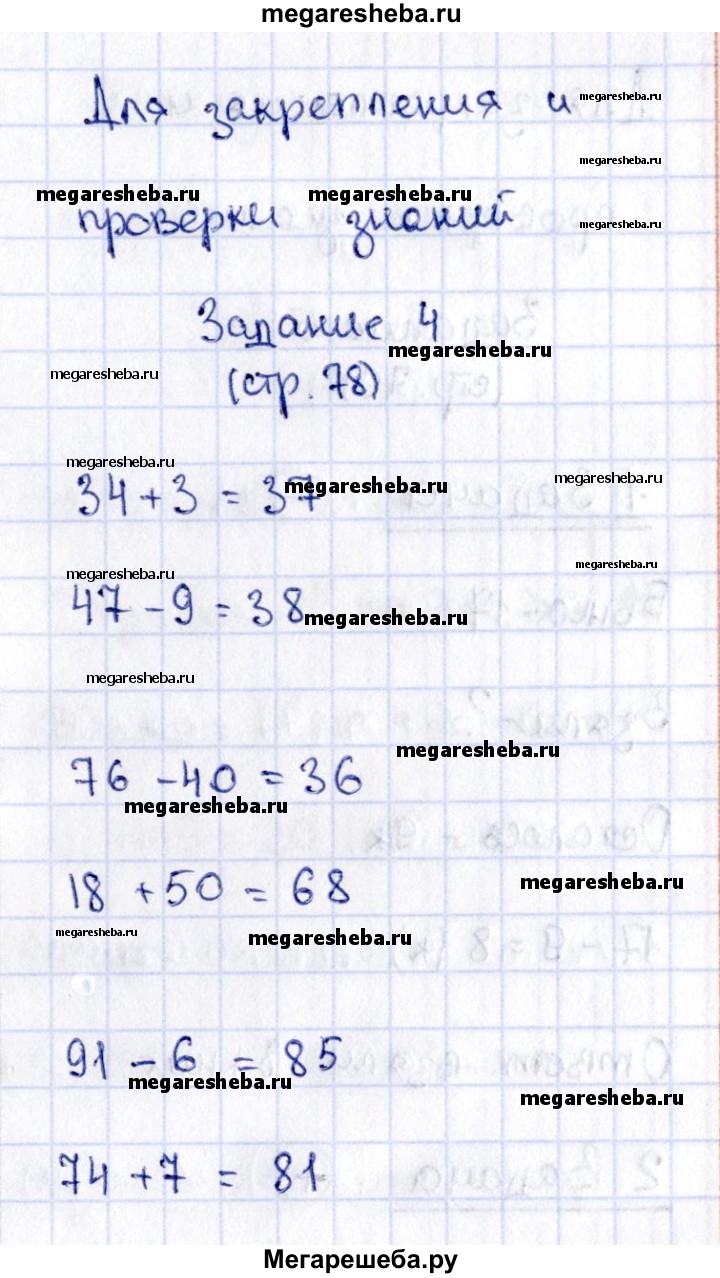 megaresheba.ru
Для закрепления и
megaresheba.ru
megaresheba.ru
megaresheba.ru megaresheba.ru
проверки знаний
megaresheba.ru
Задание 4
megaresheba.ru
megaresheba.ru
(стр. 78)
megaresheba.ru
megaresheba.ru
34 + 3 = 37
megaresheba.ru
megaresheba.ru
megaresheba.ru
47 - 9 = 38
megaresheba.ru
megaresheba.ru
megaresheba.ru
76 - 40 = 36
megaresheba.ru
18 + 50 = 68
megaresheba.ru
megaresheba.ru
megaresheba.ru
91 - 6 = 85
megaresheba.ru
megaresheba.ru
74 + 7 = 81
Мегарешеба.ру